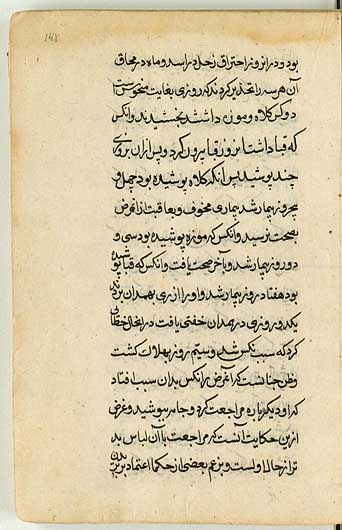 بود و در انروز احتراق زحل در اسد و ماه در محاق
آن هر سه را تحذیر کردند که روزی بغایت منحوس است
دو کس کلاه و موزه داشتند بخشیدند و انکس
که قبا داشت بزور قبا بیرون کرد و پس ازان بروزی
چند پوشید پس انکه کلاه پوشیده بود چهل و
پنجروز بیمار شد بیماری مخوف و بعاقبت از انمرض
بصحت نرسید و انکس که موزه پوشیده بود سی و
دو روز بیمار شد و باخر صحت یافت و انکس که قبا پوشیده
بود هفتاد روز بیمار شد و او را از ری بهمدان بردند
یکدو روزی در همدان خفتی یافت در انحال خطائی
کرد که سبب نکس شد و سیم روز بهلاک گشت
و ظن چنانست که انمرض را نکس بدان سبب افتاد
که او دیگر باره مراجعت کرد و جامه پوشید و غرض
ازین حکایت آنست که مراجعت با آن لباس بد
تر از حال اولست و بزعم بعضی از حکما اعتماد برین